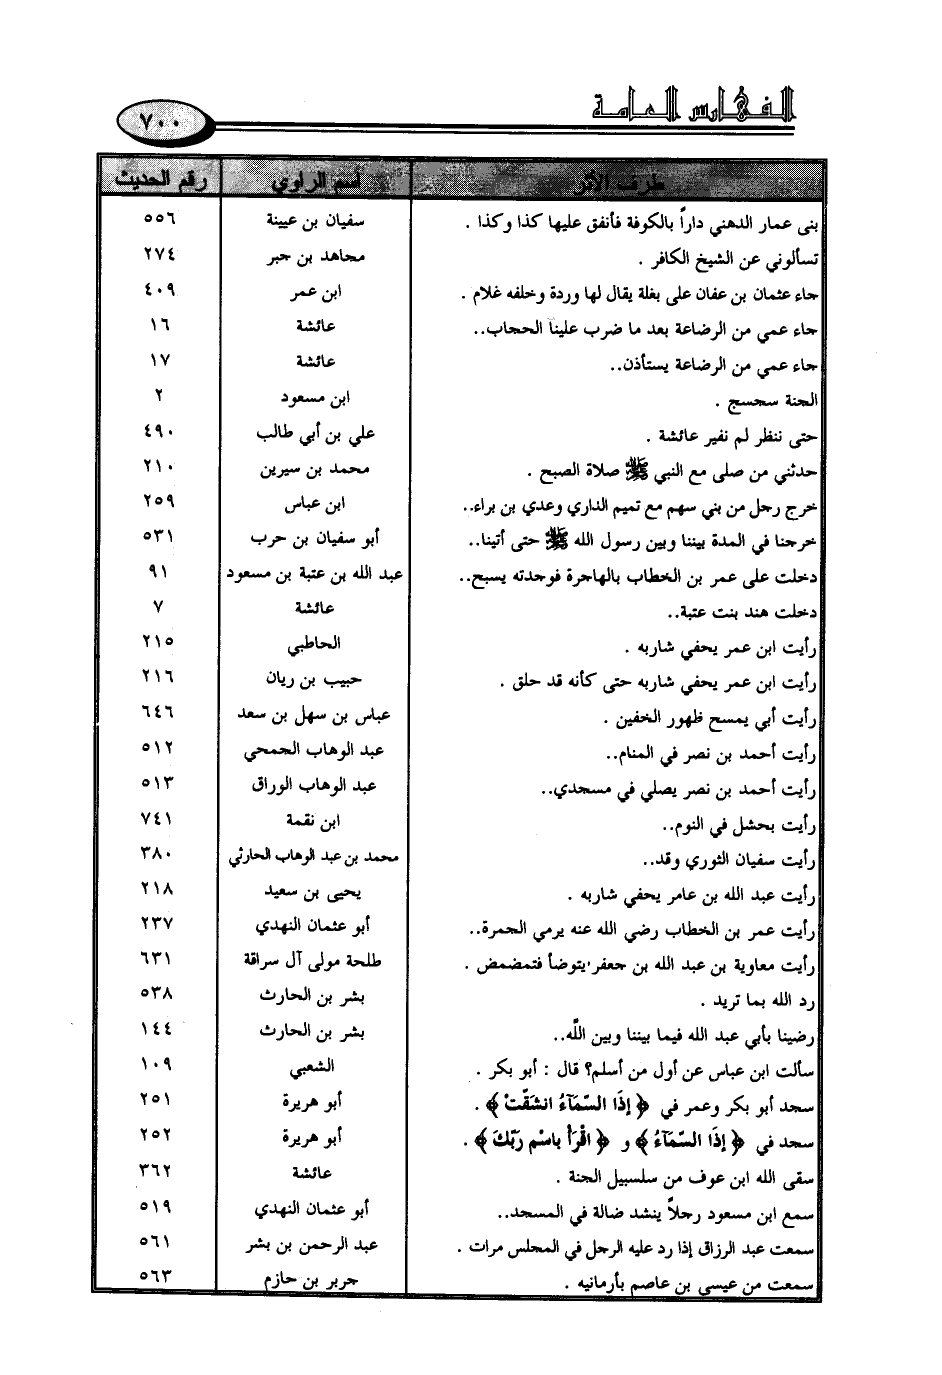 الفهارس العامة
٧٠٠
طرف الأثر اسم الراوي رقم الحديث
بنى عمار الدهني داراً بالكوفة فأنفق عليها كذا وكذا . سفيان بن عيينة ٥٥٦
تسألوني عن الشيخ الكافر . مجاهد بن جبر ٢٧٤
جاء عثمان بن عفان على بغلة يقال لها وردة وخلفه غلام . ابن عمر ٤٠٩
جاء عمي من الرضاعة بعد ما ضرب علينا الحجاب.. عائشة ١٦
جاء عمي من الرضاعة يستأذن.. عائشة ١٧
الجنة سجسج . ابن مسعود ٢
حتى ننظر لم نفير عائشة . علي بن أبي طالب ٤٩٠
حدثني من صلى مع النبي ﷺ صلاة الصبح . محمد بن سيرين ٢١٠
خرج رجل من بني سهم مع تميم الداري وعدي بن براء.. ابن عباس ٢٥٩
خرجنا في المدة بيننا وبين رسول الله ﷺ حتى أتينا.. أبو سفيان بن حرب ٥٣١
دخلت على عمر بن الخطاب بالهاجرة فوجدته يسبح.. عبد الله بن عتبة بن مسعود ٩١
دخلت هند بنت عتبة.. عائشة ٧
رأيت ابن عمر يحفي شاربه . الحاطبي ٢١٥
رأيت ابن عمر يحفي شاربه حتى كأنه قد حلق . حبيب بن ريان ٢١٦
رأيت أبي يمسح ظهور الخفين . عباس بن سهل بن سعد ٦٤٦
رأيت أحمد بن نصر في المنام.. عبد الوهاب الجمحي ٥١٢
رأيت أحمد بن نصر يصلي في مسجدي.. عبد الوهاب الوراق ٥١٣
رأيت بحشل في النوم.. ابن نقمة ٧٤١
رأيت سفيان الثوري وقد.. محمد بن عبد الوهاب الحارثي ٣٨٠
رأيت عبد الله بن عامر يحفي شاربه . يحيى بن سعيد ٢١٨
رأيت عمر بن الخطاب رضي الله عنه يرمي الجمرة.. أبو عثمان النهدي ٢٣٧
رأيت معاوية بن عبد الله بن جعفر يتوضأ فتمضمض . طلحة مولى آل سراقة ٦٣١
رد الله بما تريد . بشر بن الحارث ٥٣٨
رضينا بأبي عبد الله فيما بيننا وبين اللَّه.. بشر بن الحارث ١٤٤
سألت ابن عباس عن أول من أسلم؟ قال : أبو بكر . الشعبي ١٠٩
سجد أبو بكر وعمر في ﴿ إِذَا السَّمَآءُ انشَقَّتْ ﴾ . أبو هريرة ٢٥١
سجد في ﴿ إِذَا السَّمَآءُ ﴾ و ﴿ اقْرَأْ بِاسْمِ رَبِّكَ ﴾ . أبو هريرة ٢٥٢
سقى الله ابن عوف من سلسبيل الجنة . عائشة ٣٦٢
سمع ابن مسعود رجلاً ينشد ضالة في المسجد.. أبو عثمان النهدي ٥١٩
سمعت عبد الرزاق إذا رد عليه الرجل في المجلس مرات . عبد الرحمن بن بشر ٥٦١
سمعت من عيسى بن عاصم بأرمانيه . جرير بن حازم ٥٦٣